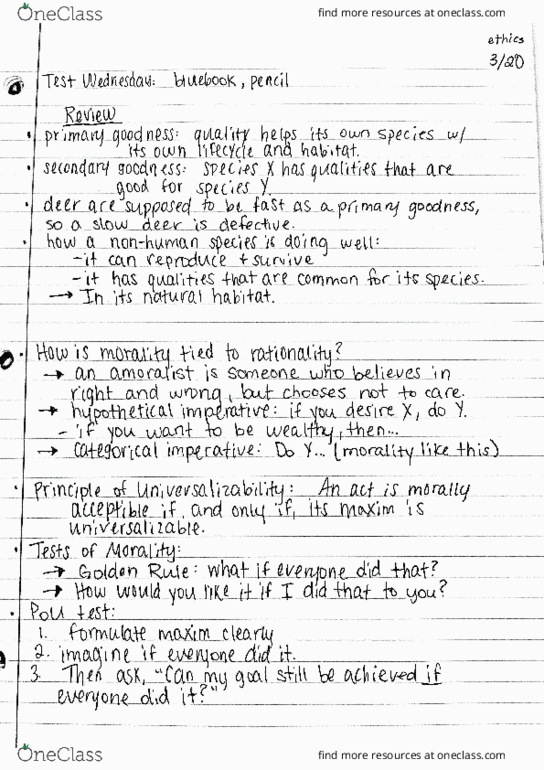 OneClass
find more resources at oneclass.com
ethics
3/20
Test Wednesday: bluebook, pencil
Review
• primary goodness: quality helps its own species w/
its own lifecycle and habitat.
• secondary goodness: species X has qualities that are
good for species Y.
• deer are supposed to be fast as a primary goodness,
so a slow deer is defective.
• how a non-human species is doing well:
- it can reproduce + survive
- it has qualities that are common for its species.
→ In its natural habitat.
• How is morality tied to rationality?
→ an amoralist is someone who believes in
right and wrong, but chooses not to care.
→ hypothetical imperative: if you desire X, do Y.
- if you want to be wealthy, then...
→ categorical imperative: Do Y... (morality like this)
• Principle of Universalizability: An act is morally
acceptible if, and only if, its maxim is
universalizable.
• Tests of Morality:
→ Golden Rule: what if everyone did that?
→ How would you like it if I did that to you?
• POU test:
1. formulate maxim clearly
2. imagine if everyone did it.
3. Then ask, "Can my goal still be achieved if
everyone did it?"
OneClass
find more resources at oneclass.com